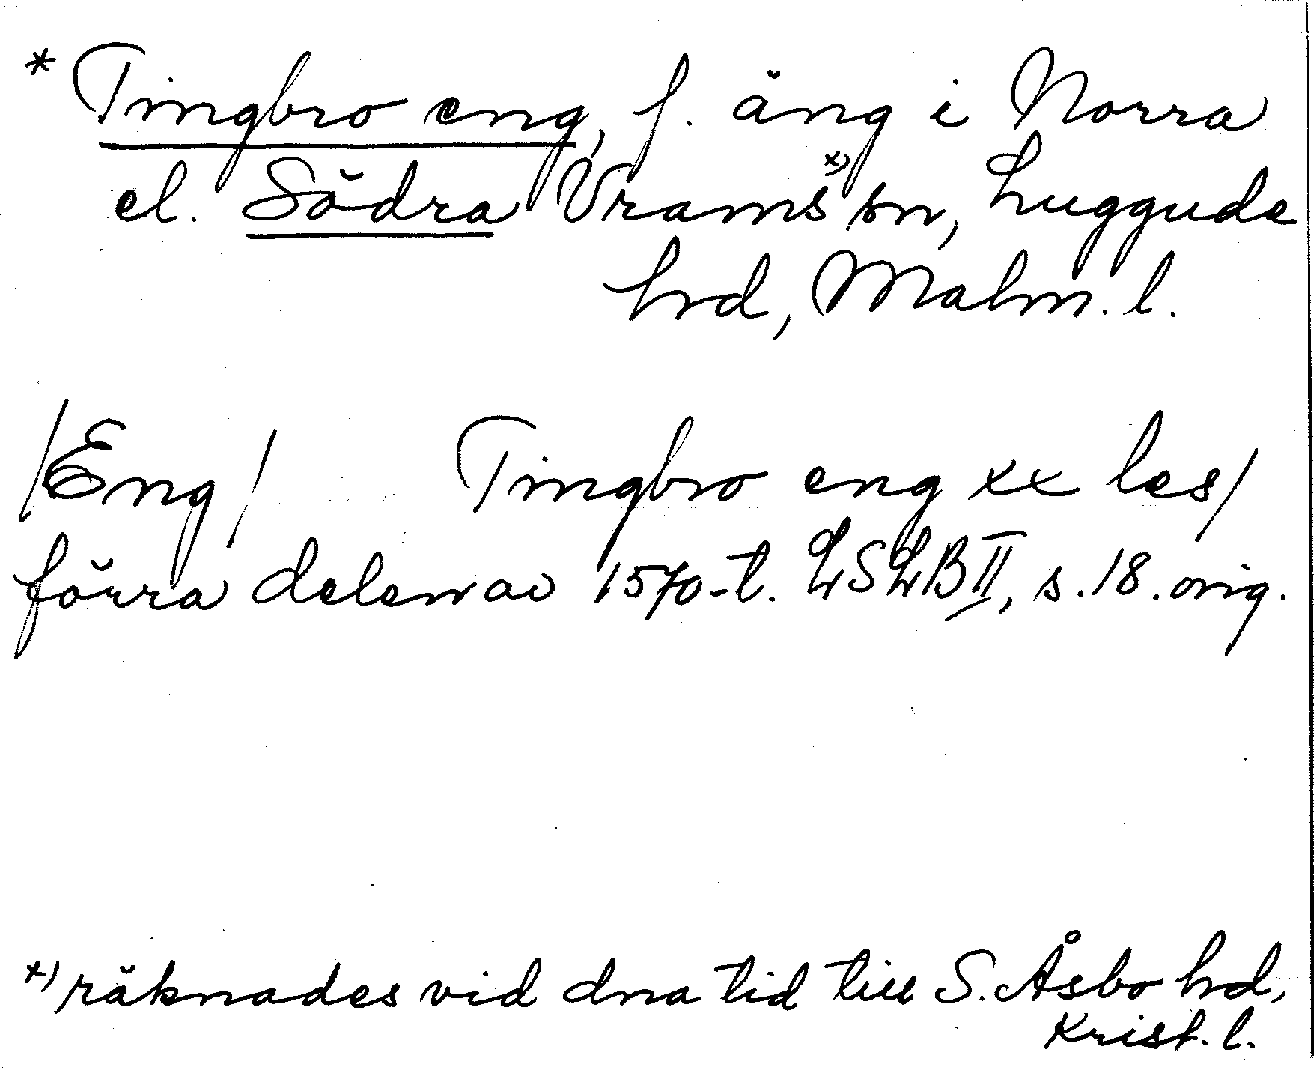 * Tingbro eng, f. äng i Norra
el. Södra Vrams x) sn, Luggude
hrd, Malm. l.
/Eng/ Tingbro eng xx les/
förra delen av 1570-t. LSLB II, s. 18. orig.
x) räknades vid dna tid till S. Åsbo hrd,
Krist. l.